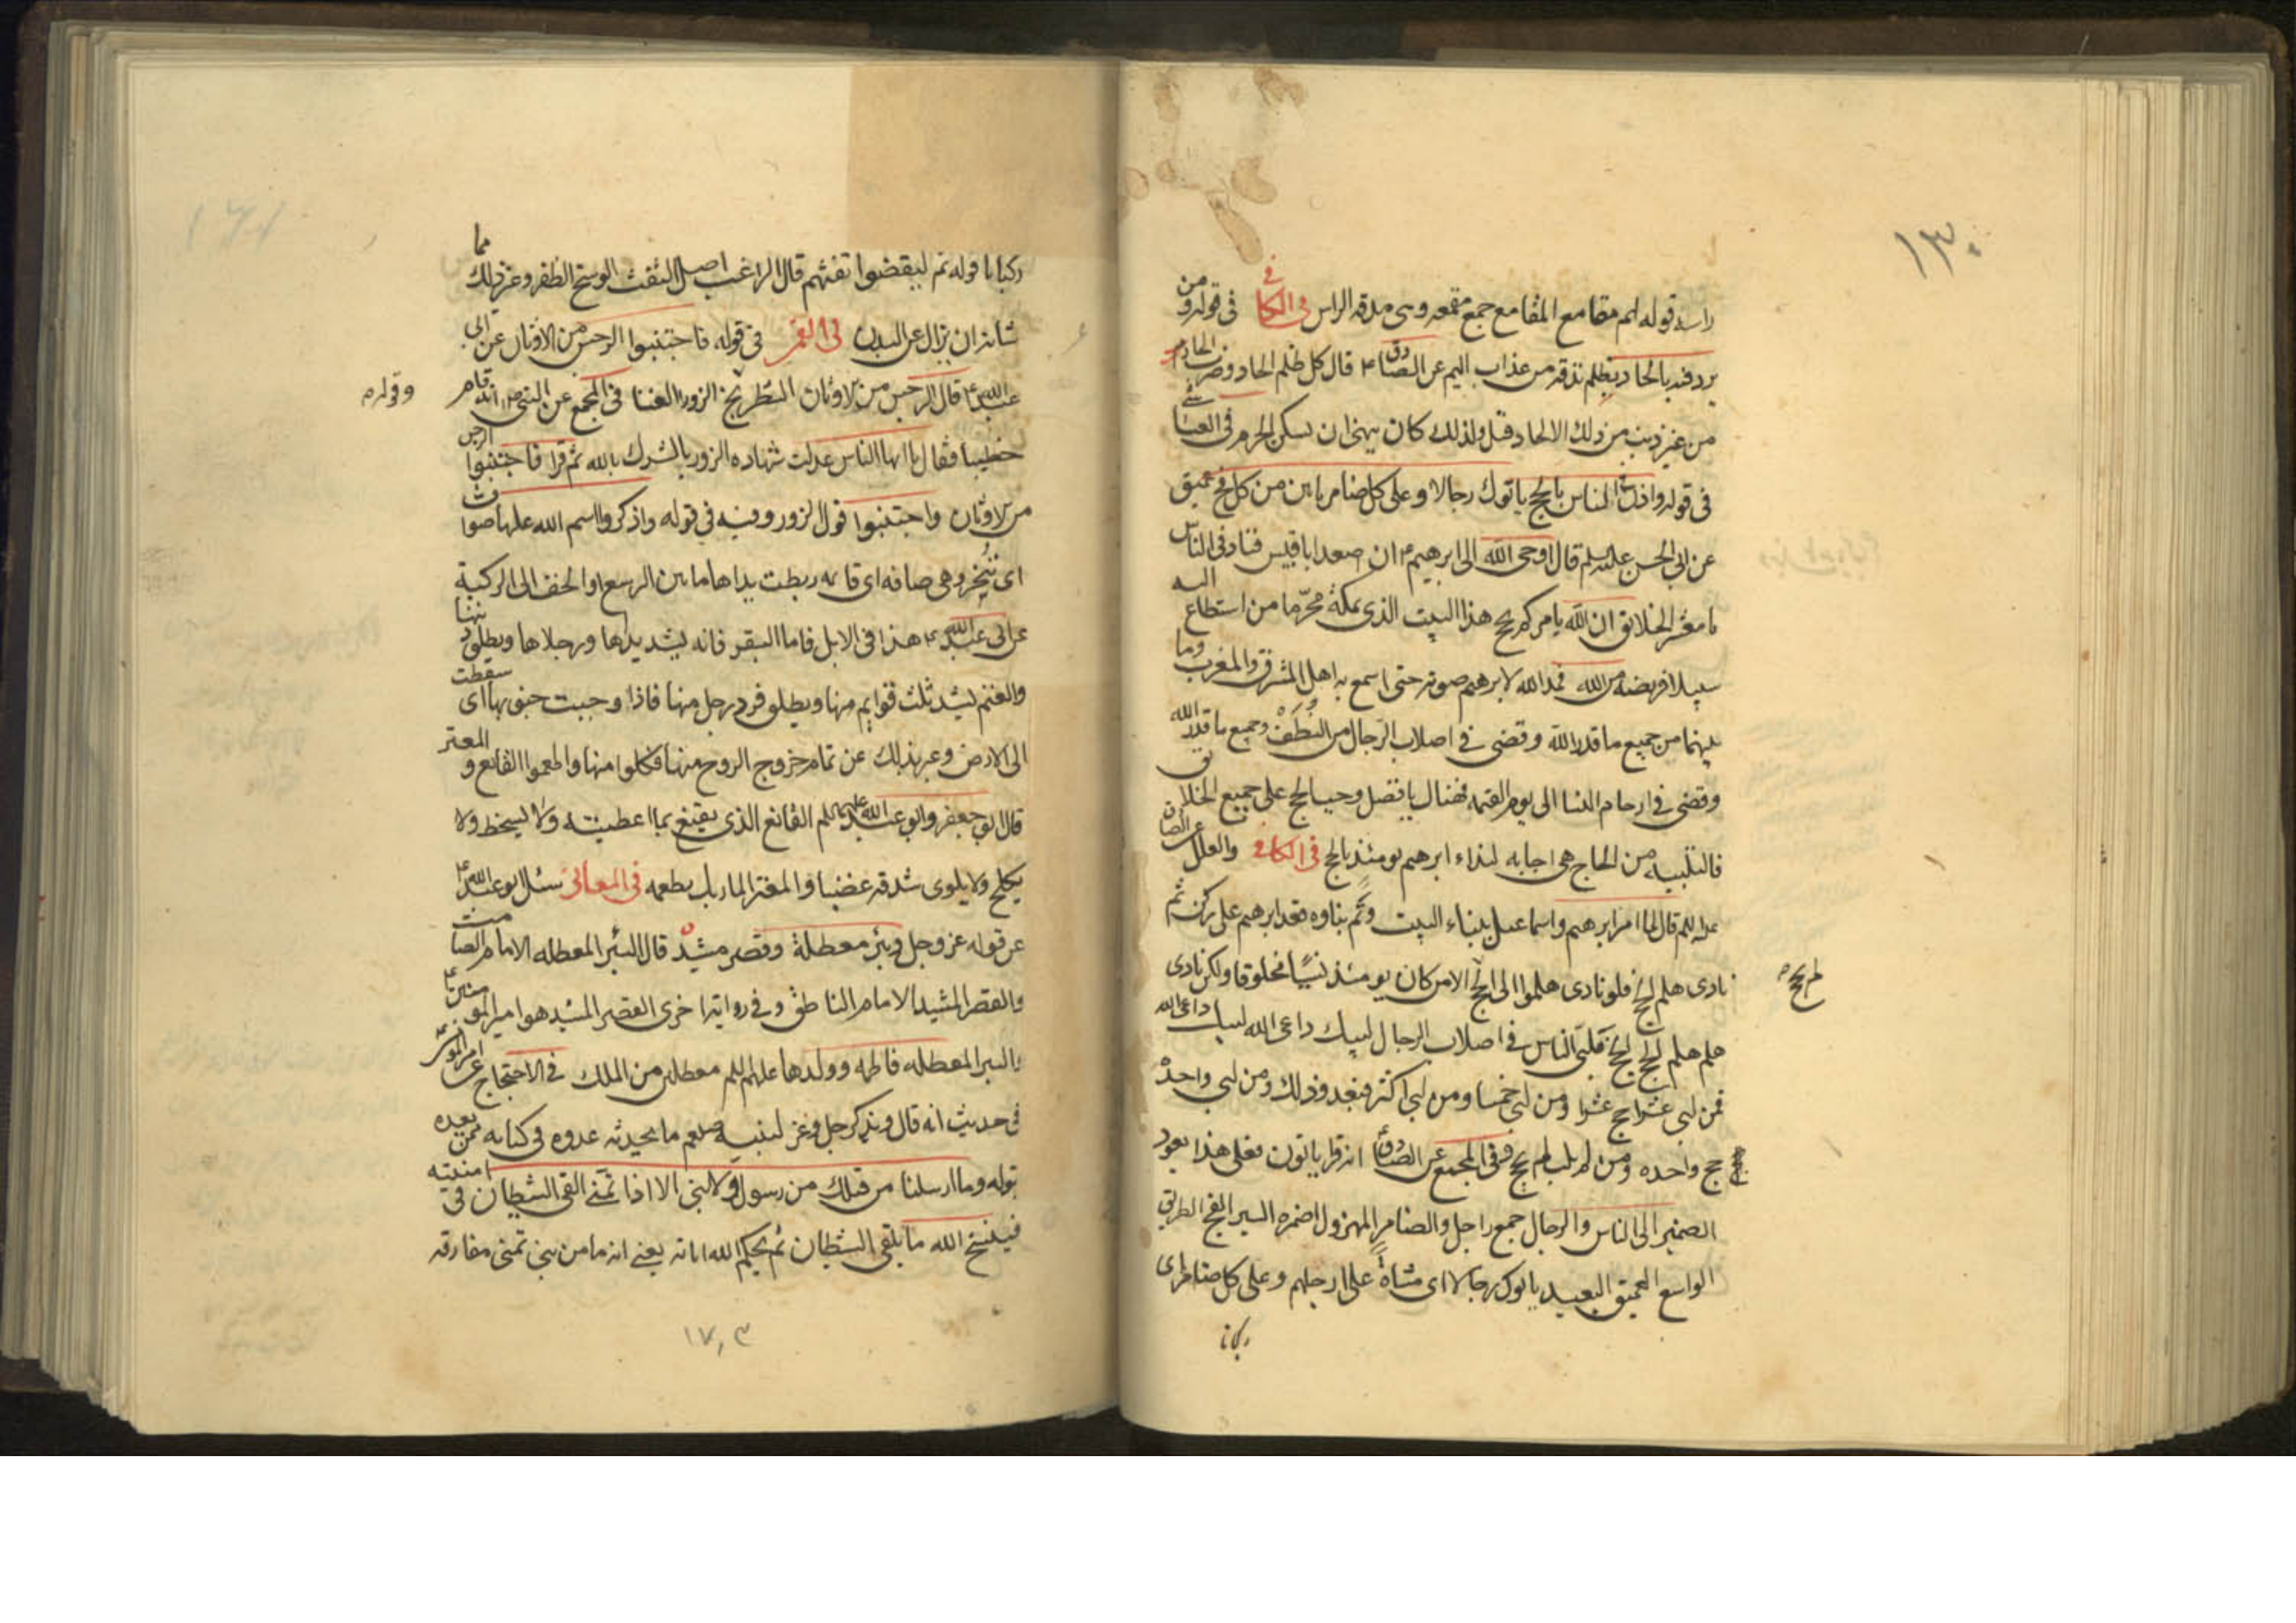 ١٣٠
راسه قوله لهم مقامع المقامع جمع مقمعه وهى مدقه الراس فى الكافى فى قوله ومن
يرد فيه بالحاد بظلم نذقه من عذاب اليم عن الصادق ع قال كل ظلم الحاد وضرب الخادم
من غير ذنب من ذلك الالحاد قيل ولذلك كان ينهى ان يسكن الحرم فى
فى قوله واذن فى الناس بالحج ياتوك رجالا وعلى كل ضامر ياتين من كل فج عميق
عن ابى الحسن عليه السلم قال اوحى الله الى ابرهيم ع ان صعد ابا قبيس فناد فى الناس
يا معشر الخلايق ان الله يامركم بحج هذا البيت الذى بمكة محرّما من استطاع اليه
سبيلا فريضه من الله فمد الله لابرهيم صوته حتى اسمع به اهل المشرق والمغرب وما
بينهما من جميع ما قدر الله وقضى فى اصلاب الرّجال من النُطَفْ وجميع ما قدر الله
وقضى فى ارحام النسا الى يوم القيمه فهناك يا فضل وجب الحج على جميع الخلايق
فالتلبيه من الحاج هى اجابه لنداء ابرهيم يومئذ بالحج فى الكافى والعلل عن الصادق
عليه السلم قال لما امر ابرهيم واسماعيل ببناء البيت وتَم بناوه قعد ابرهيم على ركن ثم
نادى هلم الحج فلو نادى هلموا الى الحج الا من كان يومئذ انسيًا مخلوقا ولكن نادى
هلم هلم الحج الحج فلبّى الناس فى اصلاب الرجال لبيك داعى الله لبيك داعى الله
فمن لبى عشرا حج عشرا ومن لبى خمسا ومن لبى اكثر فبعدد ذلك ومن لبى واحدة
حج واحده ومن لم يلب لم يحج ففى المجمع عن الصادق ع انه قرا ياتون فعلى هذا يعود
الضمير الى الناس والرجال جمع راجل والضامر المهزول اضمره السير الفج الطريق
الواسع العميق البعيد ياتوك رجالا اى مشاةً على ارجلهم وعلى كل ضامر اى
ركبانا
لم يحج
١٣١
ركبانا قوله ثم ليقضوا تفثهم قال الراغب اصل التفث الوسخ الظفر وغير ذلك مما
شانه ان يزال عن البدن فى القمى فى قوله فاجتنبوا الرجس من الاوثان عن ابى
عبد الله ع قال الرجس من الاوثان الشطرنج الزور الغنا فى المجمع عن النبى ص انه قام
خطيبا فقال يا ايها الناس عدلت شهاده الزور بالشرك بالله ثم قرا فاجتنبوا الرجس
من الاوثان واجتنبوا قول الزور وفيه فى قوله واذكروا اسم الله عليها صواف
اى تُنْخِر وهى صافه اى قائمه ربطت يداها ما بين الرسغ او الخف الى الركبة
عن ابى عبد الله ع هذا فى الابل فاما البقر فانه يشد يداها ورجلاها ويطلق ذنبها
والغنم يشد ثلث قوايم منها ويطلق فرد رجل منها فاذا وجبت جنوبها اى سقطت
الى الارض وعبر بذلك عن تمام خروج الروح منها فكلوا منها واطعموا القانع والمعتر
قال ابو جعفر وابو عبد الله عليهما السلم القانع الذى يقنع بما اعطيته ولا يسخط ولا
يكلح ولا يلوى شدقه غضبا والمعتر المار بك يطعمه فى المعانى سئل ابو عبد الله ع
عن قوله عز وجل وبئر معطلة وقصر مشيد قال البئر المعطله الامام الصامت
والقصر المشيد الامام الناطق وفى رواية اخرى القصر المشيد هو امير المومنين ع
والبير المعطله فاطمه وولدها عليهم السلم معطلين من الملك فى الاحتجاج عن امير المومنين ع
فى حديث انه قال ويذكر جل وعز لنبيه صلعم ما يحدثه عدوه فى كتابه من بعده
بقوله وما ارسلنا من قبلك من رسول ولا نبى الا اذا تمنّى القى الشيطان فى امنيته
فينسخ الله ما يلقى الشيطان ثم يحكم الله اياته يعنى انه ما من نبى تمنى مفارقه
وقوله
١٧,٣